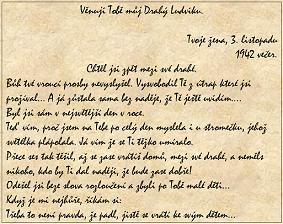 Věnuji Tobě můj Drahý Ludvíku.
Tvoje žena, 3. listopadu
1942 večer.
Chtěl jsi zpět mezi své drahé.
Bůh tvé vroucí prosby nevyslyšel. Vysvobodil Tě z útrap které jsi
prožíval... A já zůstala sama bez naděje, že Tě ještě uvidím....
Byl jsi sám v nejsvětější den v roce.
Teď vím, proč jsem na Tebe po celý den myslela i u stromečku, jehož
světélka plápolala. Já vím je se Ti těžko umíralo.
Přece ses tak těšil, až se zase vrátíš domů, mezi své drahé, a neměls
nikoho, kdo by Ti dal naději, že bude zase dobře!
Odešel jsi bez slova rozloučení a zbyli po Tobě malé děti...
Když je mi nejhůře, říkám si:
Třeba to není pravda, že padl, jistě se vrátí ke svým dětem...